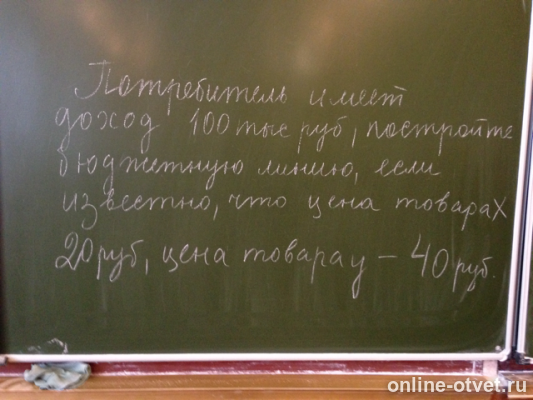 Потребитель имеет
доход 100 тыс руб, постройте
бюджетную линию, если
известно, что цена товара X
20 руб, цена товара y – 40 руб.
online-otvet.ru